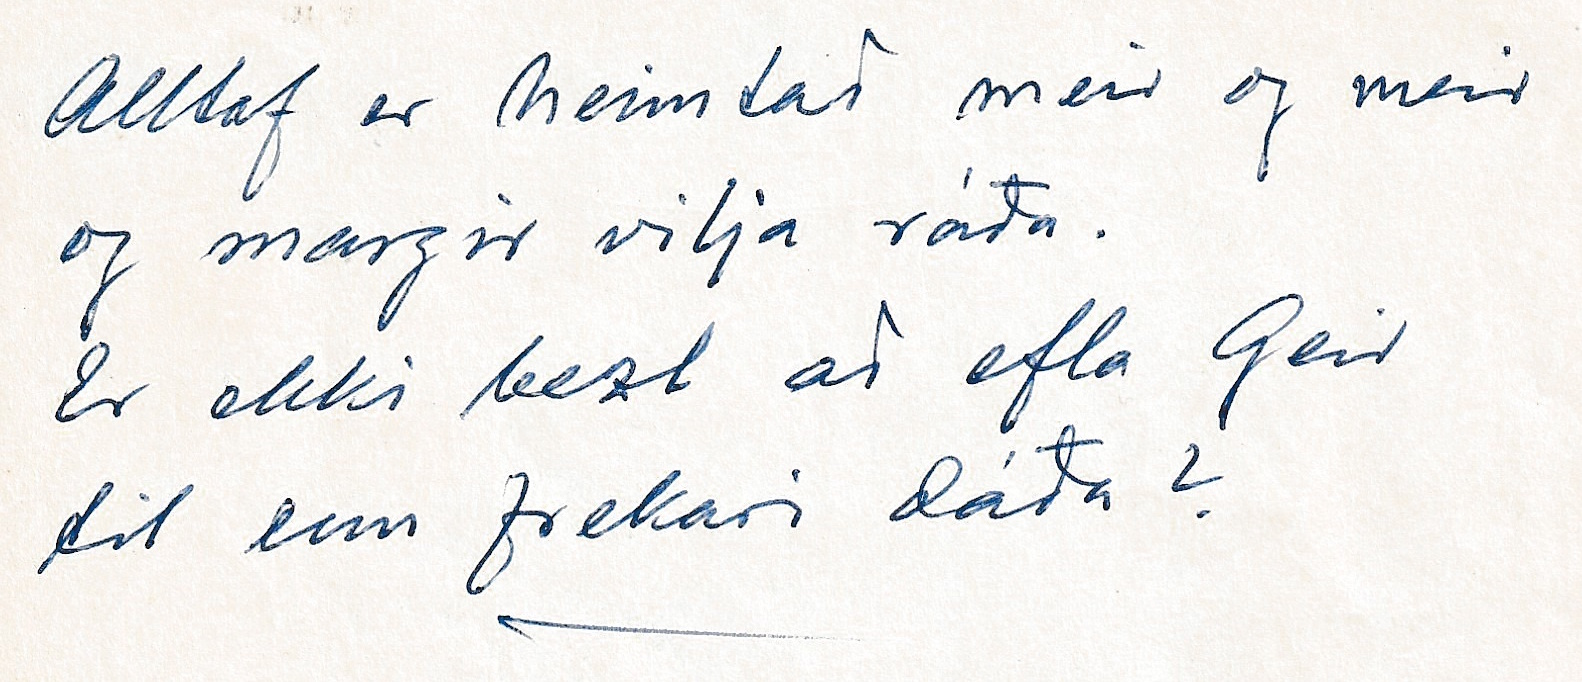 Alltaf er heimtað meir og meir
og margir vilja ráða.
Er ekki bezt að efla Geir
til enn frekari dáða?